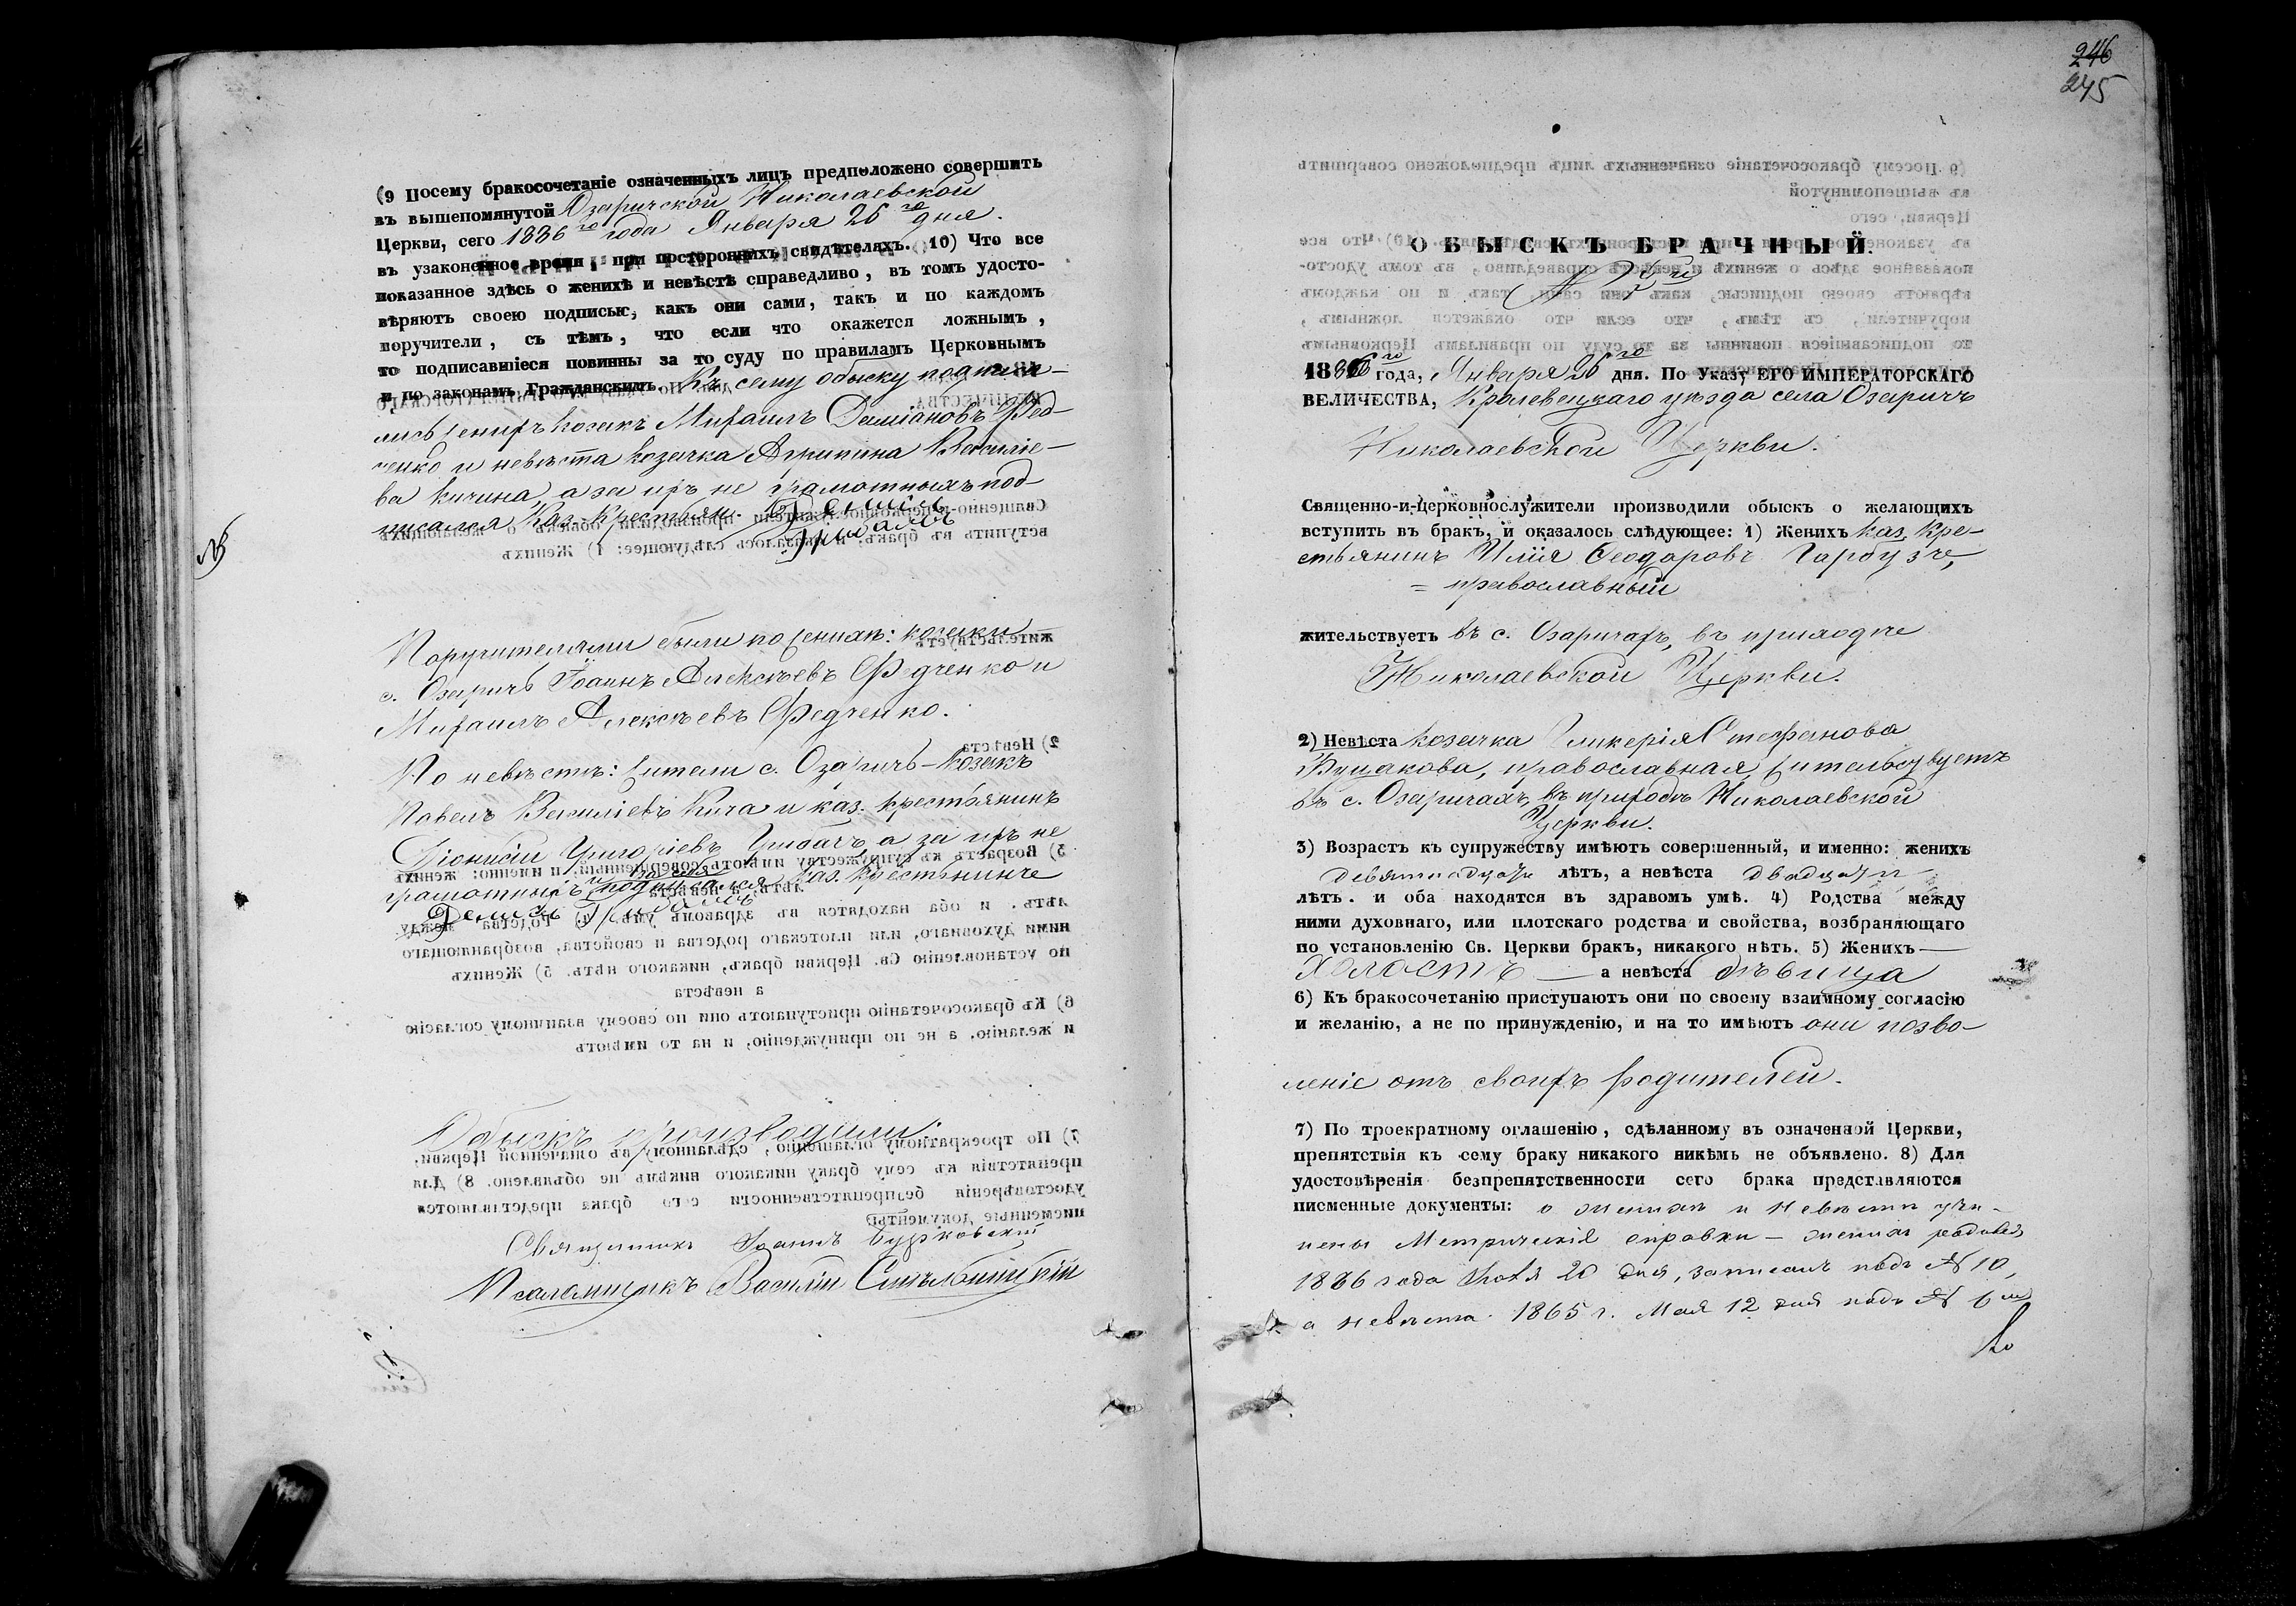 (9 Посему бракосочетаніе означенныхъ лицъ предположено совершить
въ вышепомянутой Озаричской Николаевской
Церкви, сего 1886 го года Января 26 го дня.
въ узаконенное время, при постороннихъ свидѣтеляхъ. 10) Что все
показанное здѣсь о женихѣ и невѣстѣ справедливо, въ томъ удосто-
вѣряютъ своею подписью, какъ они сами, такъ и по каждомъ
поручители, съ тѣмъ, что если что окажется ложнымъ,
то подписавшіеся повинны за то суду по правиламъ Церковнымъ
и по законамъ Гражданскимъ. Къ сему обыску подписа-
лись женихъ козакъ Михаилъ Даміановъ Фед-
ченко и невѣста козачка Агрипина Василіе-
ва Кичина, а за ихъ не грамотныхъ под-
писался Каз. Крестьян. Денисъ
Грибачъ
Поручителями были по женихѣ: козаки
с. Озаричъ Іоаннъ Алексѣевъ Федченко и
Михаилъ Алексѣевъ Федченко.
По невѣстѣ: жители с. Озаричъ - козакъ
Павелъ Василіевъ Кича и каз. крестьянинъ
Діонисій Григоріевъ Грибачъ, а за ихъ не
грамотныхъ и по себя подписался каз. крестьянинъ
Денисъ Грибачъ
Обыскъ производили:
Священникъ Іоаннъ Бурковскій
Псаломщикъ Василій Синѣльницкій
246
245
ОБЫСКЪ БРАЧНЫЙ.
1886 го года, Января 26 го дня. По Указу ЕГО ИМПЕРАТОРСКАГО
ВЕЛИЧЕСТВА, Кролевецкаго уѣзда села Озаричъ
Николаевской Церкви.
Священно-и-церковнослужители производили обыскъ о желающихъ
вступить въ бракъ, и оказалось слѣдующее: 1) Женихъ каз. кре-
стьянинъ Илія Ѳеодоровъ Гарбузъ,
= православный
жительствуетъ въ с. Озаричахъ, въ приходѣ
Николаевской Церкви.
2) Невѣста козачка Гликерія Стефанова
православная, жительствуетъ
въ с. Озаричахъ, въ приходѣ Николаевской
Церкви.
3) Возрастъ къ супружеству имѣютъ совершенный, и именно: женихъ
девятнадцать лѣтъ, а невѣста двадцати
лѣтъ. и оба находятся въ здравомъ умѣ. 4) Родства между
ними духовнаго, или плотскаго родства и свойства, возбраняющаго
по установленію Св. Церкви бракъ, никакого нѣтъ. 5) Женихъ —
холостъ — а невѣста дѣвица
6) Къ бракосочетанію приступаютъ они по своему взаимному согласію
и желанію, а не по принужденію, и на то имѣютъ они позво-
леніе отъ своихъ родителей.
7) По троекратному оглашенію, сдѣланному въ означенной Церкви,
препятствія къ сему браку никакого никѣмъ не объявлено. 8) Для
удостовѣренія безпрепятственности сего брака представляются
писменные документы: о женихѣ и невѣстѣ учи-
нены Метрическія справки — женихъ родився
1866 года Іюля 20 дня, записанъ подъ № 10,
а невѣста 1865 г. Мая 12 дня подъ № 6